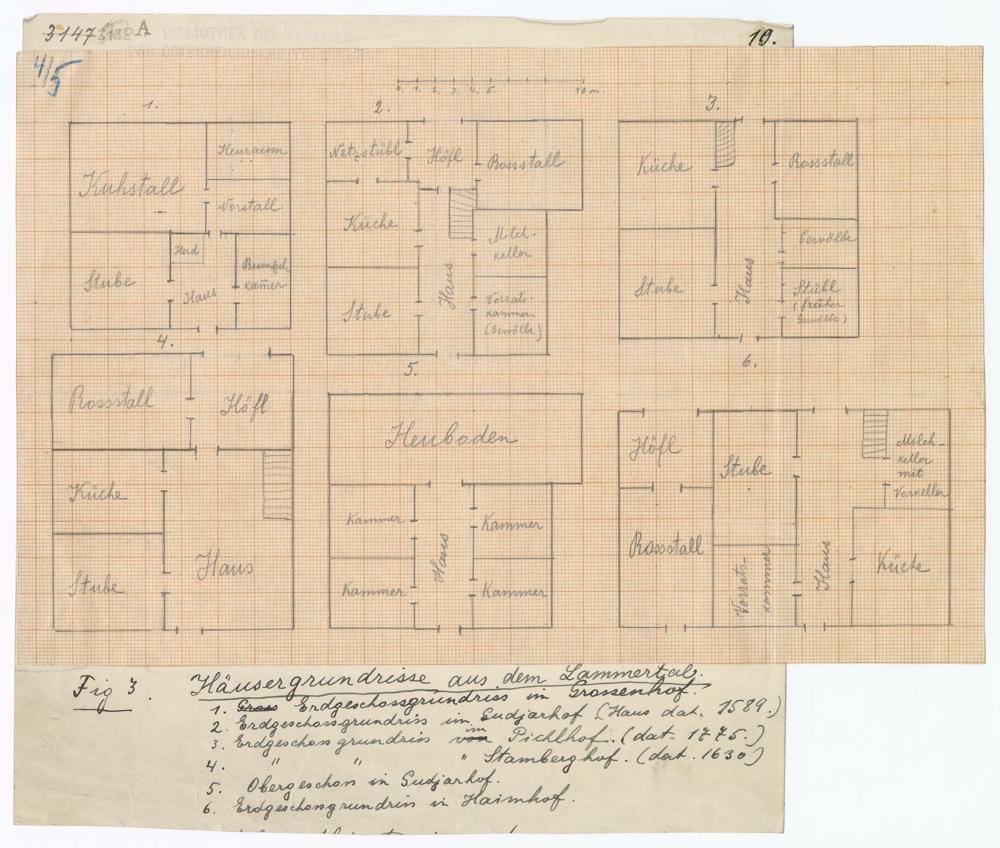 31473 A
19.
BIBLIOTHEK DES VEREINES
4/5
0. 1. 2. 3. 4. 5. 10 m.
1.
Kuhstall
Heuraum
Vorstall
Stube
Herd
Haus
kam̄er
2.
Netzstübl
Höfl
Rossstall
Küche
Milch-
keller
Stube
Haus
Vorrats-
kammer.
(Gewölbe)
3.
Küche
Rossstall
Gewölbe
Stube
Haus
Stübl
(früher
Gewölbe)
4.
Rossstall
Höfl
Küche
Stube
Haus
5.
Heuboden
Kammer
Kammer
Kammer
Haus
Kammer
6.
Höfl
Stube
Milch-
keller
mit
Vorkeller
Rossstall
Vorrats-
kammer
Haus
Küche
Fig 3. Häusergrundrisse aus dem Lammertal.
1. Erdgeschossgrundriss in Grossenhof.
2. Erdgeschossgrundriss im Gudjarhof (Haus dat. 1589.)
3. Erdgeschossgrundriss im Pichlhof. (dat. 1775.)
4. " " " Stamberghof. (dat. 1630)
5. Obergeschoss in Gudjarhof.
6. Erdgeschossgrundriss in Haimhof.